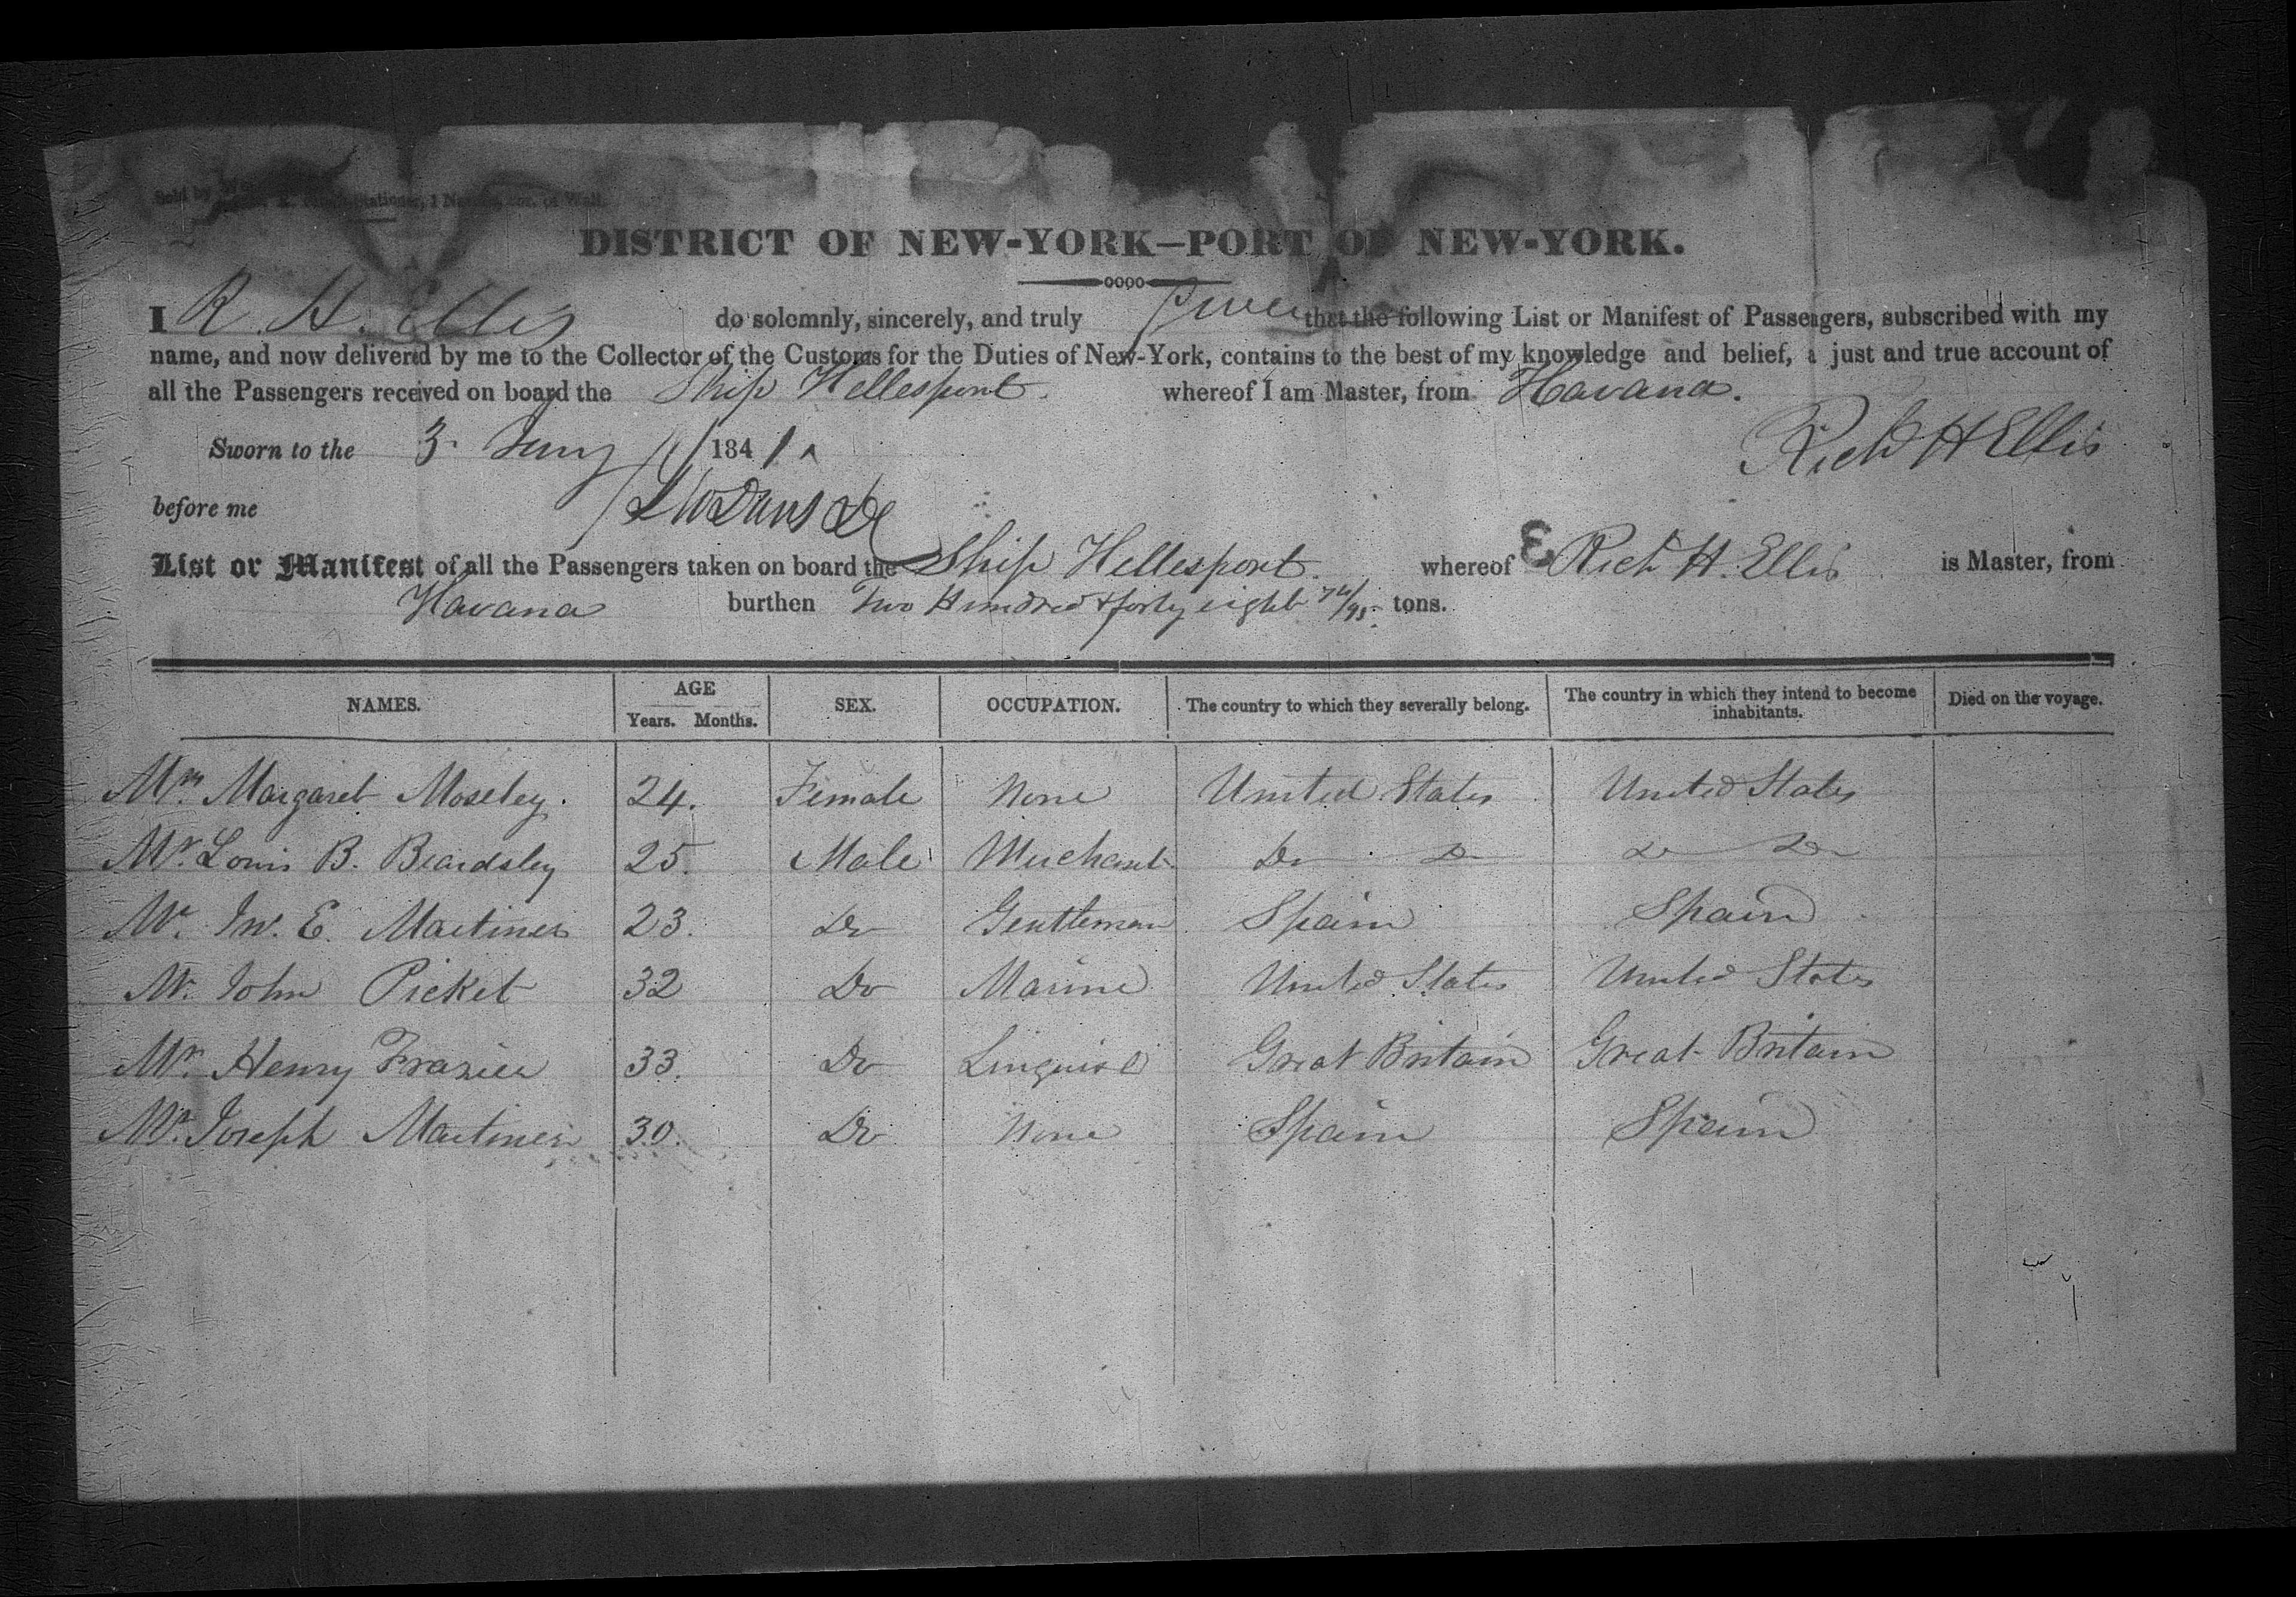 Sold by
Stationer, 1 Nassau, cor. of Wall.
DISTRICT OF NEW-YORK—PORT OF NEW-YORK.
I R. H. Ellis do solemnly, sincerely, and truly swear that the following List or Manifest of Passengers, subscribed with my
name, and now delivered by me to the Collector of the Customs for the Duties of New-York, contains to the best of my knowledge and belief, a just and true account of
all the Passengers received on board the Ship Hellespont. whereof I am Master, from Havana.
Sworn to the 3. 1841
Richd H Ellis
before me
List or Manifest of all the Passengers taken on board the Ship Hellespont. whereof Richd H. Ellis is Master, from
Havana burthen Two Hundred & forty eight 74/95 tons.
NAMES. AGE Years. Months. SEX. OCCUPATION. The country to which they severally belong. The country in which they intend to become inhabitants. Died on the voyage.
Mrs. Margaret Moseley. 24. Female None United States United States
Mr. Louis B. Beardsley 25. Male Merchant Do Do Do Do
Mr. E. Martines 23. Do Gentleman Spain Spain
Mr. John Picket 32 Do Marine United States United States
Mr. Henry Frazier 33. Do Linguist Great Britain Great Britain
Mr. Joseph Martines 30. Do None Spain Spain